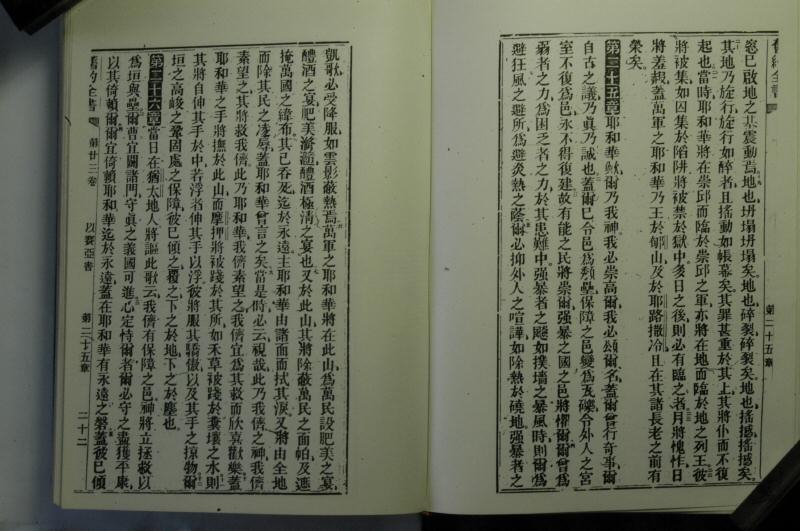 舊約全書
第二十五章
慾已啟地之基震動焉地也坍塌坍塌矣地也碎裂碎裂矣地也搖撼搖撼矣
其地乃旋行旋行如醉者且搖動如帳幕矣其罪甚重於其上其將仆而不復
起也當時耶和華將在崇邱而臨於崇邱之軍亦將在地而臨於地之列王彼
將被集如囚集於陷阱將被禁於獄中多日之後則必有臨之者月將愧怍日
將羞赧蓋萬軍之耶和華乃王於郇山及於耶路撒冷且在其諸長老之前有
榮矣
第二十五章耶和華歟爾乃我神我必崇高爾我必頌爾名蓋爾曾行奇事爾
自古之議乃眞乃誠也蓋爾已令邑爲頹壘保障之邑變爲瓦礫令外人之宮
室不復爲邑永不得復建故有能之民將崇爾强暴之國之邑將懼爾爾曾爲
弱者之力爲困乏者之力於其患難中强暴者之颷如撲墻之暴風時則爾爲
避狂風之避所爲避炎熱之蔭爾必抑外人之喧譁如除熱於磽地强暴者之
凱歌必受降服如雲影蔽熱焉萬軍之耶和華將在此山爲萬民設肥美之宴
醴酒之宴肥美瀡瀡醴酒極清之宴也又於此山其將除蔽萬民之面帕及遮
掩萬國之緯布其已吞死迄於永遠主耶和華由諸面而拭其淚又將由全地
而除其民之凌辱蓋耶和華曾言之矣當是時必云視哉此乃我儕之神我儕
素望之其將救我儕此乃耶和華我儕素望之我儕宜爲其救而欣喜歡樂蓋
耶和華之手將撫於此山而摩押將被踐於其所如禾草被踐於糞壤之水則
其將自伸其手於中若浮者伸其手以浮彼將服其驕傲以及其手之掠物爾
垣之高峻之鞏固處之保障彼已傾之覆之下之於地下之於塵也
第二十六章當日在猶太地人將謳此歌云我儕有保障之邑神將立拯救以
爲垣與壘爾曹宜闢諸門守眞之義國可進心定恃爾者爾必守之盡獲平康
以其倚賴爾爾宜倚賴耶和華迄於永遠蓋在耶和華有永遠之磐蓋彼已傾
舊約全書
第廿三卷
以賽亞書
第二十五章
二十二